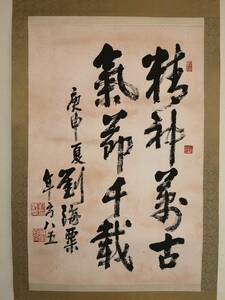 精神萬古
氣節千載
庚申夏
劉海粟
年方八五